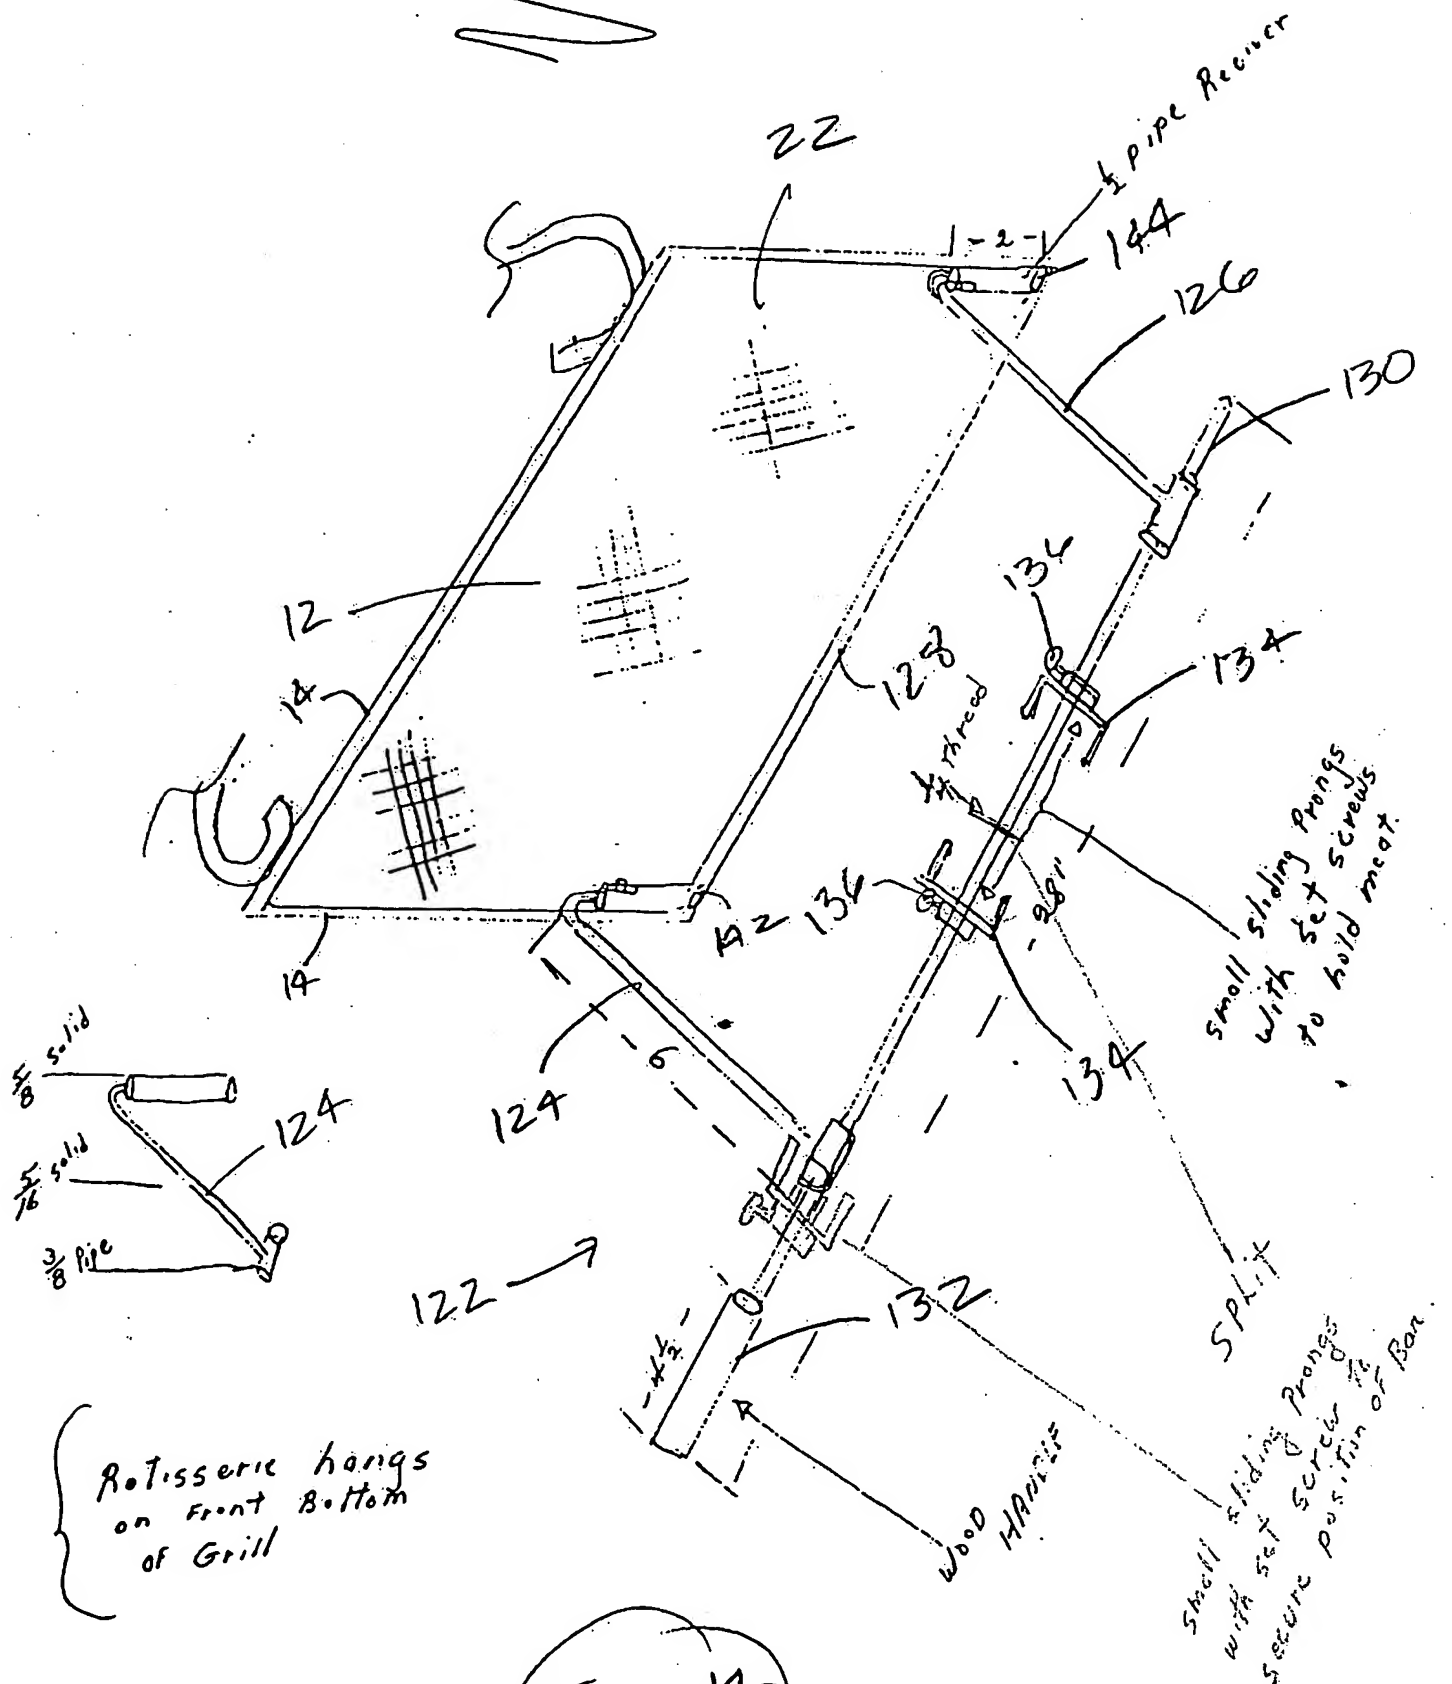 22
½ pipe
- 2 -
144
126
130
12
14
128
136
134
¼ thread
136
- 28"
small sliding Prongs
with set screws
to hold meat.
14
142
124
6
134
5/8 solid
5/16 solid
3/8 Pipe
124
122
132
- 4½ -
SPLit
WOOD
HANDLE
small sliding Prongs
with set screw to
secure position OF Bar.
Rotisserie hangs
on Front Bottom
of Grill